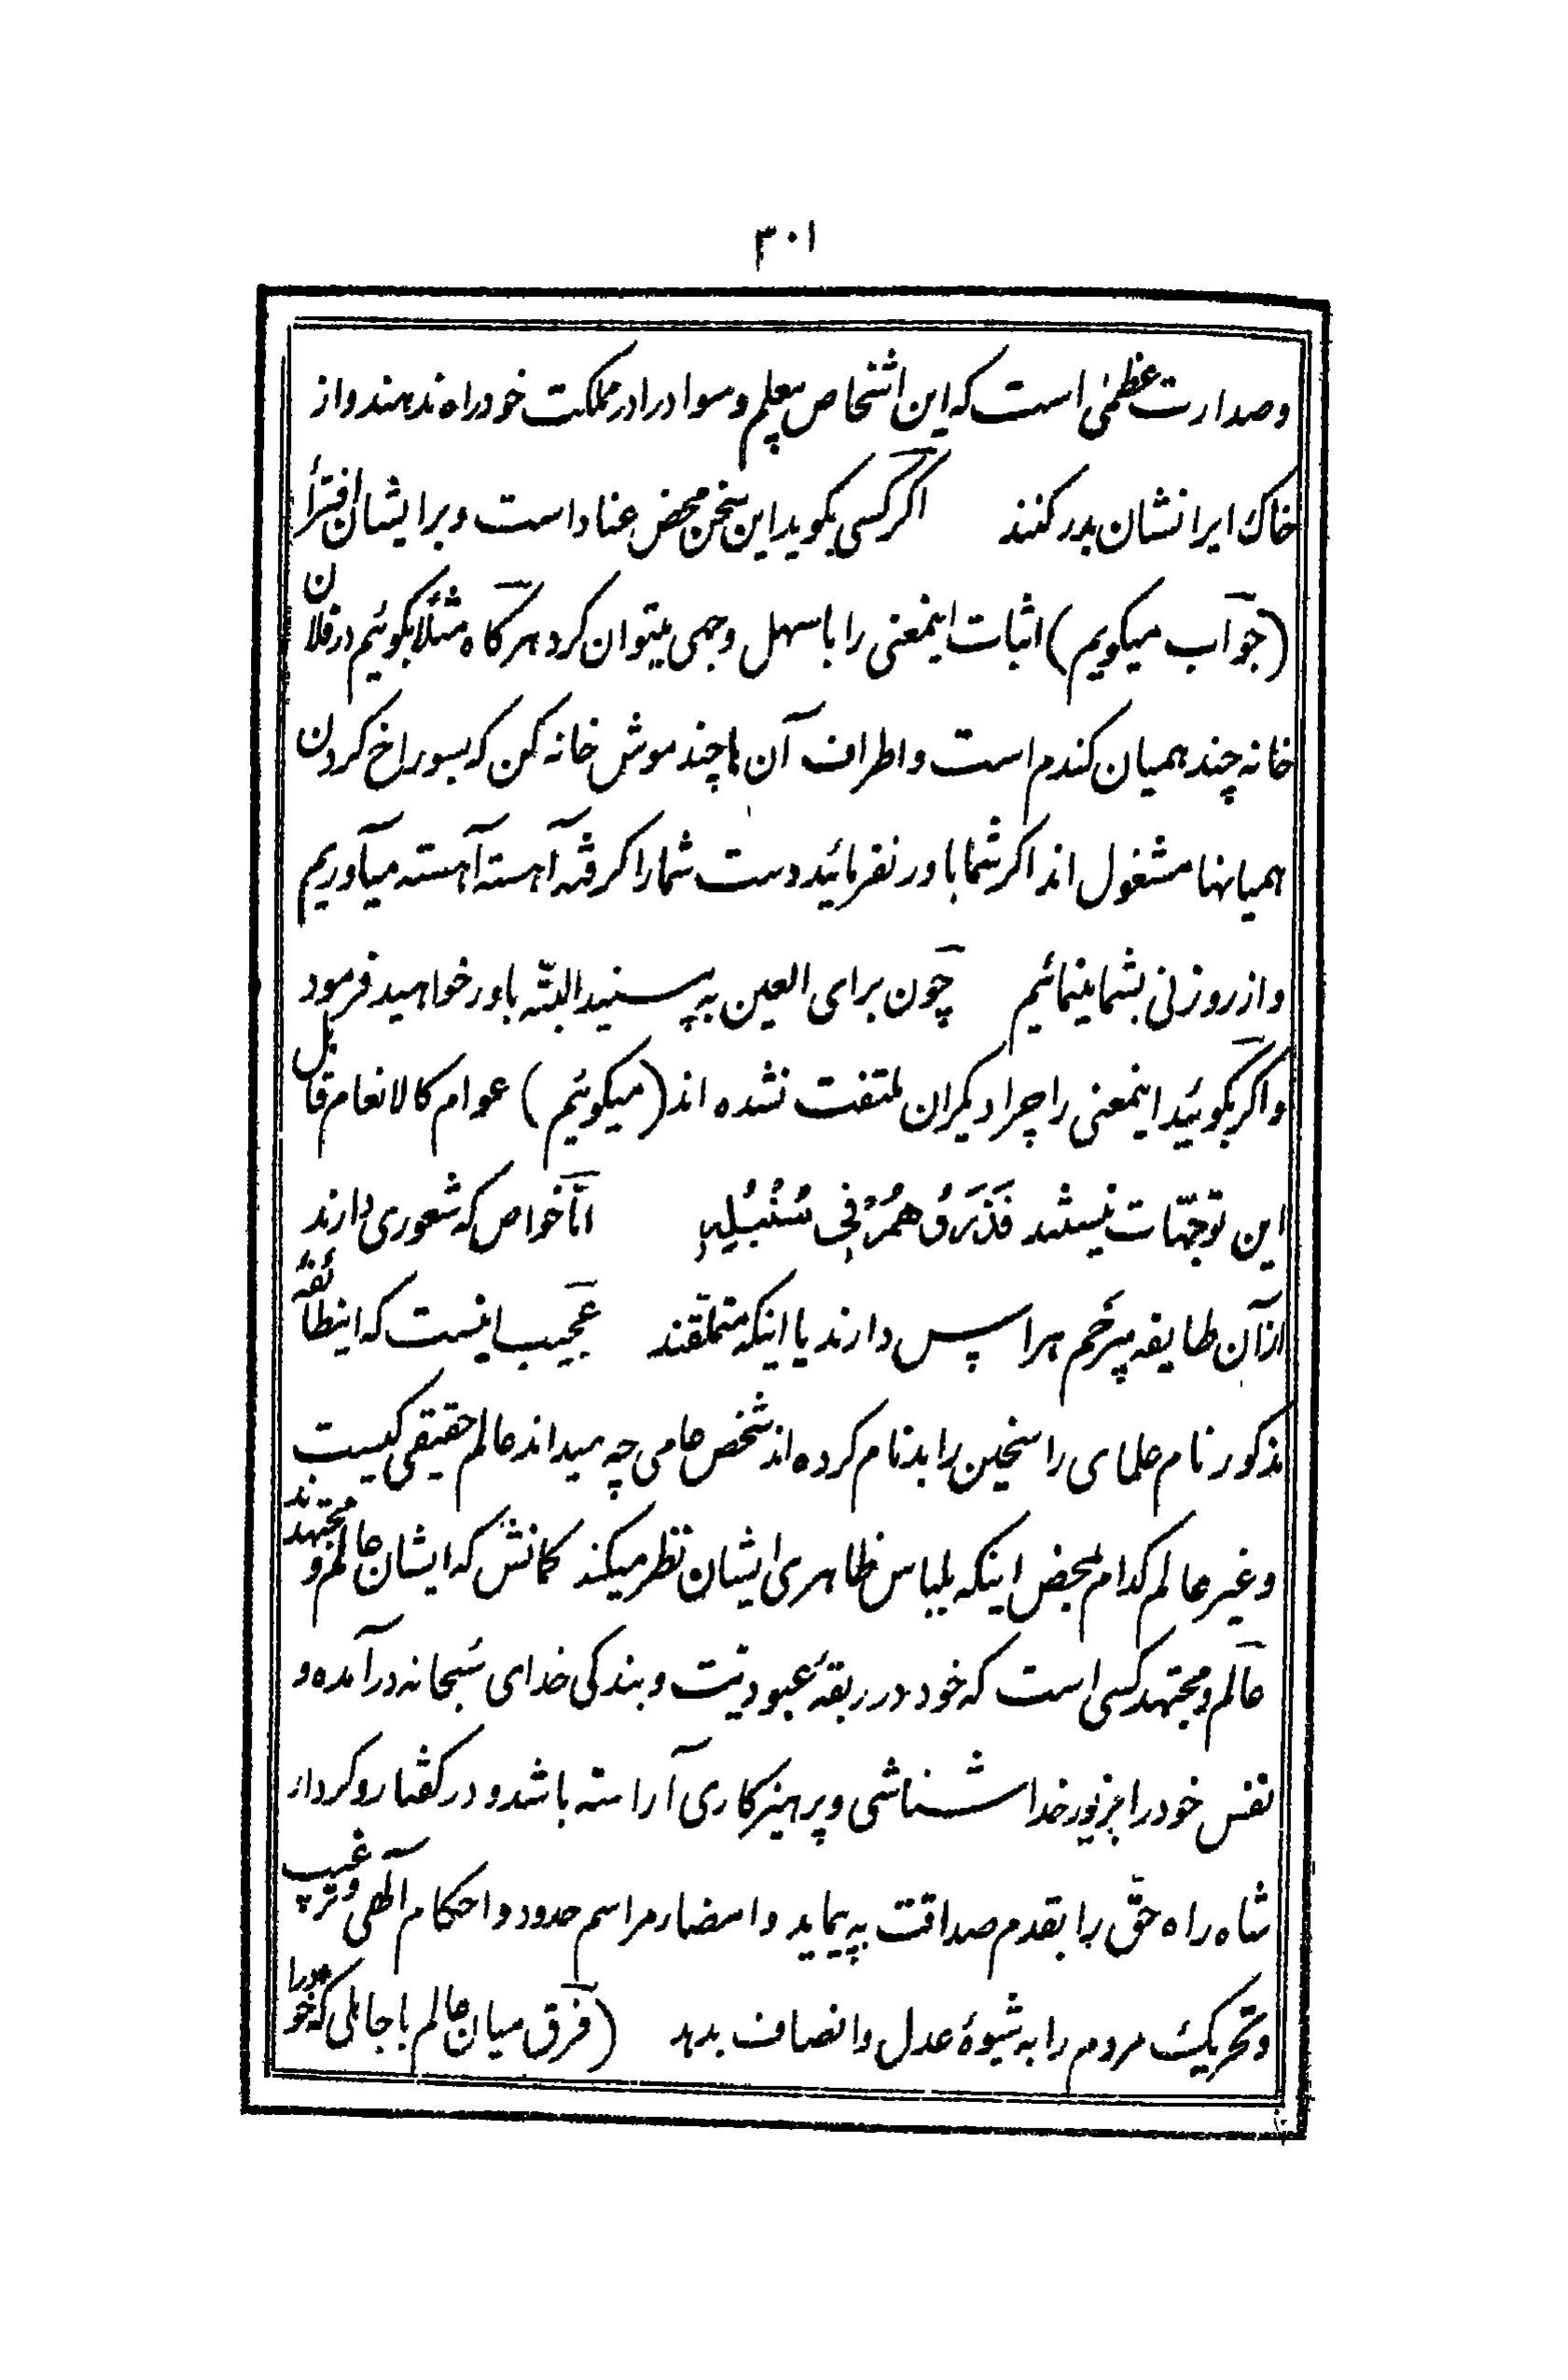 ۳۰۱
وصدارت عظمٰی است که این اشخاص بیعلم وسواد را در مملکت خود راه ندهند واز
خاک ایرانشان بدر کنند اگر کسی بکوید این سخن محض عناد است وبر ایشان افترأ
(جوآب میکویم) اثبات اینمعنی را باسهل وجهی میتوان کرد هرگاه مثلًا بکوئیم در فلان
خانه چند همیان کندم است واطراف آن ها چند موش خانه کن که بسوراخ کردن
همیانها مشغول اند اکر شما باور نفرمائید دست شما را کرفته آهسته آهسته میآوریم
واز روزنی بشما بنمائیم چون برای العین به پسنید البتّه باور خواهید فرمود
واکر بکوئید اینمعنی را چرا دیکران ملتفت نشده اند (میکوئیم) عوام کالانعام قابل
این توجّهات نیستند فَذَرُوهُمْ فِی سُنْبُلِهِ امّا خواص که شعوری دارند
از آن طایفه بیرحم هراس دارند یا اینکه متملّقند عجیب اینست که اینطائفهٔ
مذکور نام علمای راسخین را بدنام کرده اند شخص عامی چه میداند عالم حقیقی کیست
وغیر عالم کدام لمحض اینکه بلباس ظاهری ایشان نظر میکند کمانش که ایشان عالم و مجتهدند
عالم ومجتهد کسی است که خود در ربقهٔ عبودیّت وبندکی خدای سُبحانه در آمده و
نفس خود را بزیور خدا شناسی وپرهیزکاری آراسته باشد و در کفتار وکردار
شاه راه حقّ را بقدم صداقت به پیماید وامضار مراسم حدود واحکام آلهی وترغیب
وتحریک مردم را به شیوهٔ عدل وانصاف بدهد (فرق میان عالم با جاهلی که خود را